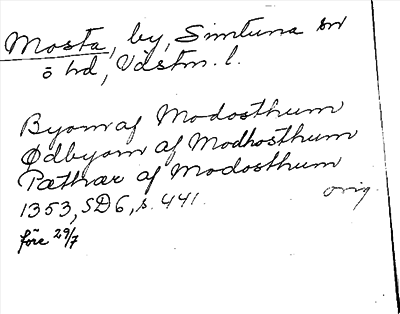 Mosta, by, Simtuna sn
ö hd, Västm. l.
Byorn af Modosthum
Ødbyorn af Modhosthum
Pæthar af Modosthum
1353, SD6, s. 441.
orig.
före 29/7